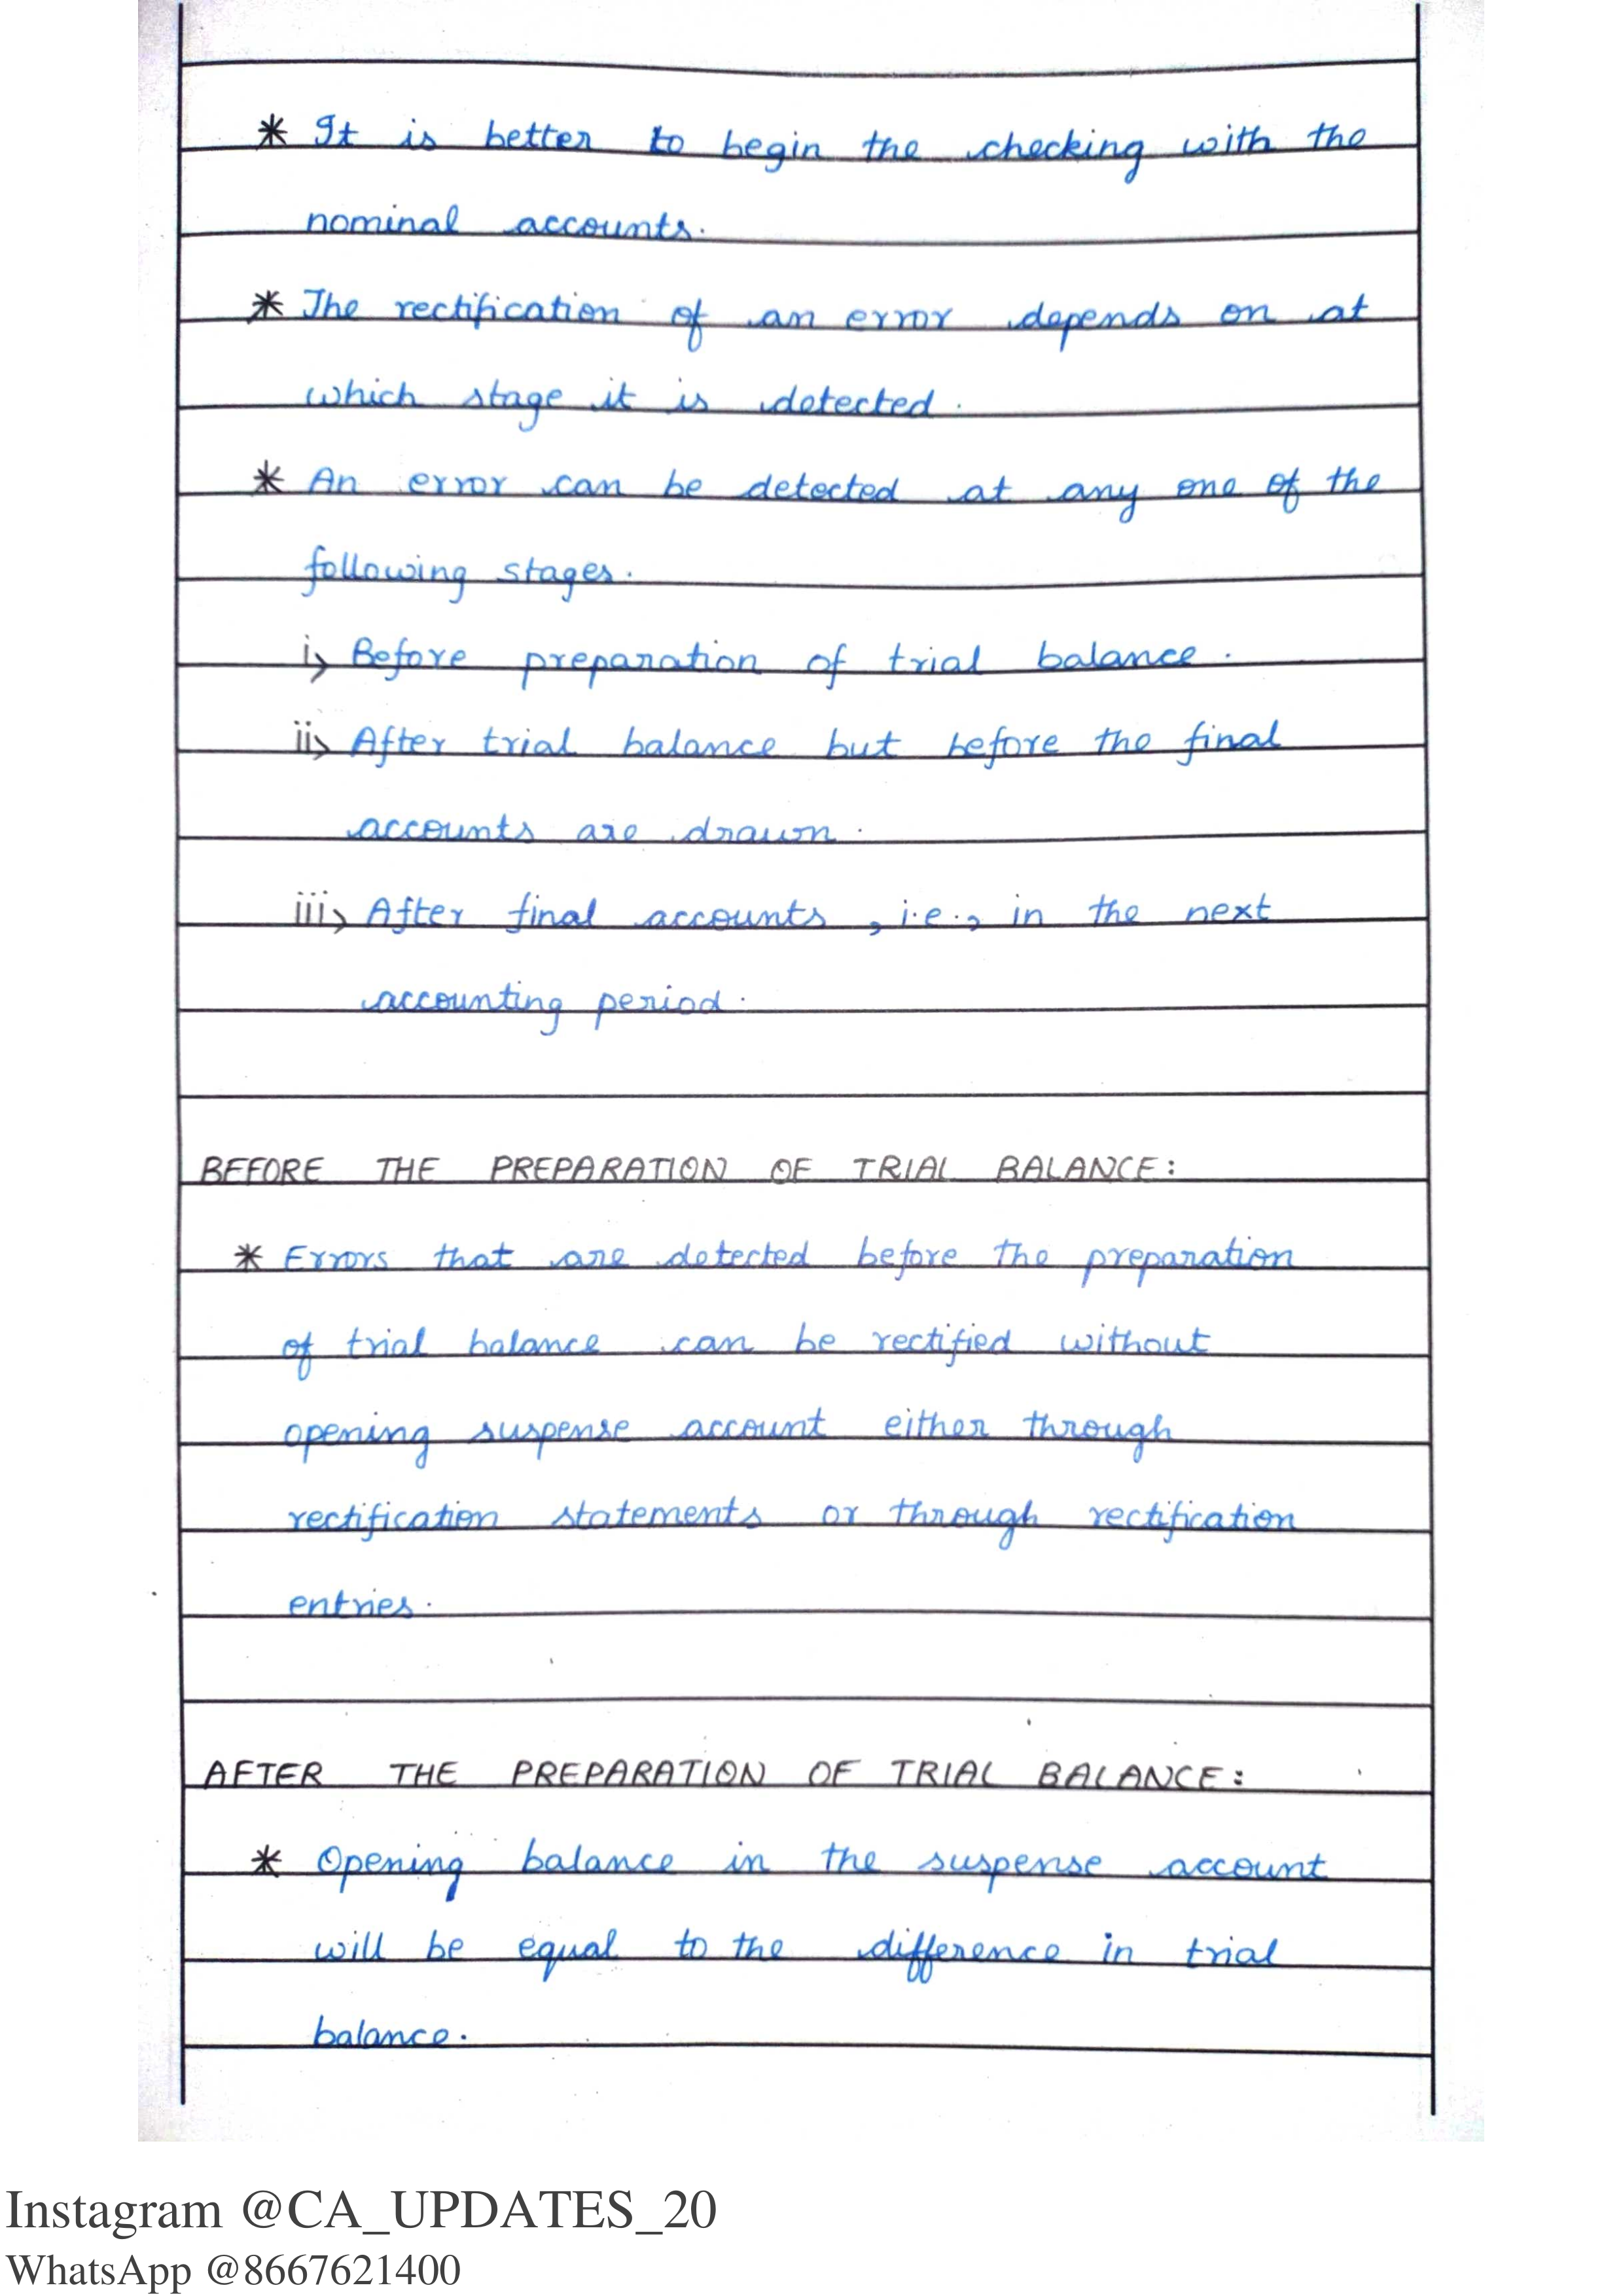 * It is better to begin the checking with the
nominal accounts.
* The rectification of an error depends on at
which stage it is detected.
* An error can be detected at any one of the
following stages.
i> Before preparation of trial balance.
ii> After trial balance but before the final
accounts are drawn.
iii> After final accounts, i.e., in the next
accounting period.
BEFORE THE PREPARATION OF TRIAL BALANCE:
* Errors that are detected before the preparation
of trial balance can be rectified without
opening suspense account either through
rectification statements or through rectification
entries.
AFTER THE PREPARATION OF TRIAL BALANCE:
* Opening balance in the suspense account
will be equal to the difference in trial
balance.
Instagram @CA_UPDATES_20
WhatsApp @8667621400